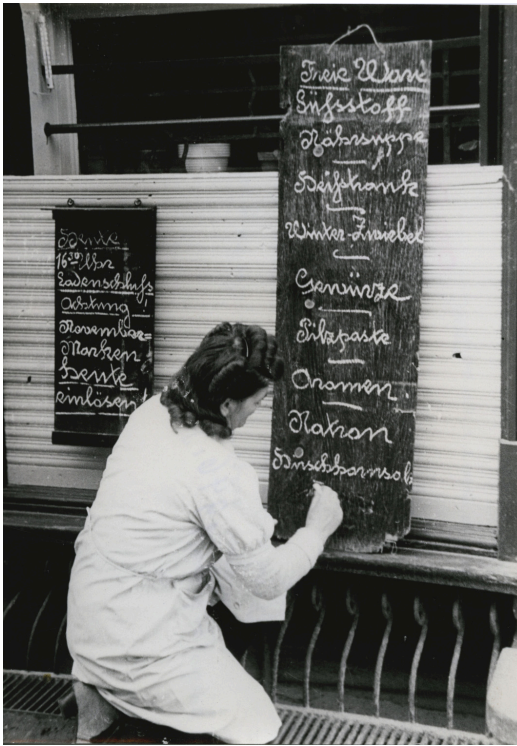 Heute
16³⁰ Uhr
Ladenschluß
Achtung!
November=
Marken
heute
einlösen!
Freie Ware
Süßstoff
Nährsuppe
Heißtrank
Winter-Zwiebel
Gewürze
Pilzpaste
Aromen.
Natron
Hirschhornsalz